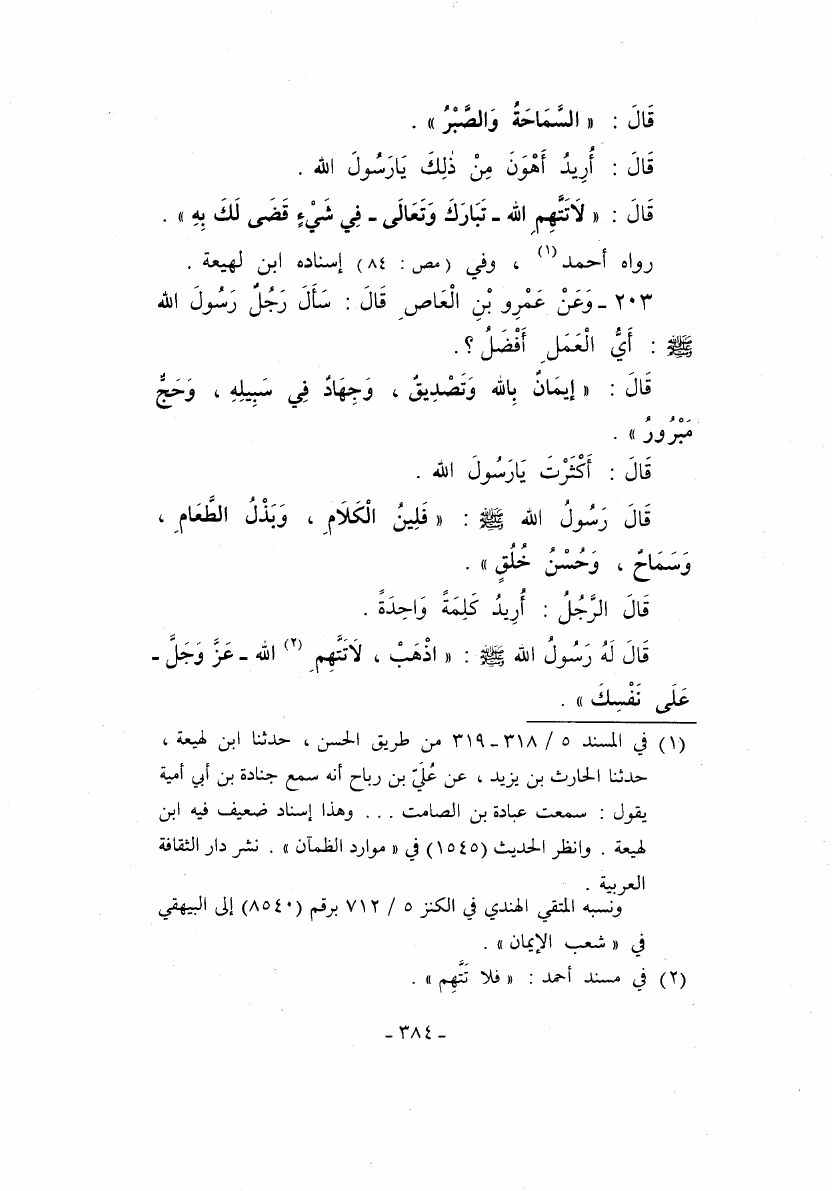 قَالَ : « السَّمَاحَةُ وَالصَّبْرُ » .
قَالَ : أُرِيدُ أَهْوَنَ مِنْ ذٰلِكَ يَارَسُولَ الله .
قَالَ : « لَاتَتَّهِمِ الله ـ تَبَارَكَ وَتَعَالَى ـ فِي شَيْءٍ قَضَى لَكَ بِهِ » .
رواه أحمد (١) ، وفي (مص : ٨٤) إسناده ابن لهيعة .
٢٠٣ ـ وَعَنْ عَمْرِو بْنِ الْعَاصِ قَالَ : سَأَلَ رَجُلٌ رَسُولَ الله
ﷺ : أَيُّ الْعَمَلِ أَفْضَلُ ؟.
قَالَ : « إِيمَانٌ بِالله وَتَصْدِيقٌ ، وَجِهَادٌ فِي سَبِيلِهِ ، وَحَجٌّ
مَبْرُورٌ » .
قَالَ : أَكْثَرْتَ يَارَسُولَ الله .
قَالَ رَسُولُ الله ﷺ : « فَلِينُ الْكَلَامِ ، وَبَذْلُ الطَّعَامِ ،
وَسَمَاحٌ ، وَحُسْنُ خُلُقٍ » .
قَالَ الرَّجُلُ : أُرِيدُ كَلِمَةً وَاحِدَةً .
قَالَ لَهُ رَسُولُ الله ﷺ : « اذْهَبْ ، لَاتَتَّهِمِ (٢) الله ـ عَزَّ وَجَلَّ ـ
عَلَى نَفْسِكَ » .
(١) في المسند ٥ / ٣١٨ ـ ٣١٩ من طريق الحسن ، حدثنا ابن لهيعة ،
حدثنا الحارث بن يزيد ، عن عُليّ بن رباح أنه سمع جنادة بن أبي أمية
يقول : سمعت عبادة بن الصامت ... وهذا إسناد ضعيف فيه ابن
لهيعة . وانظر الحديث (١٥٤٥) في « موارد الظمآن » . نشر دار الثقافة
العربية .
ونسبه المتقي الهندي في الكنز ٥ / ٧١٢ برقم (٨٥٤٠) إلى البيهقي
في « شعب الإيمان » .
(٢) في مسند أحمد : « فلا تَتَّهِم » .
ـ ٣٨٤ ـ